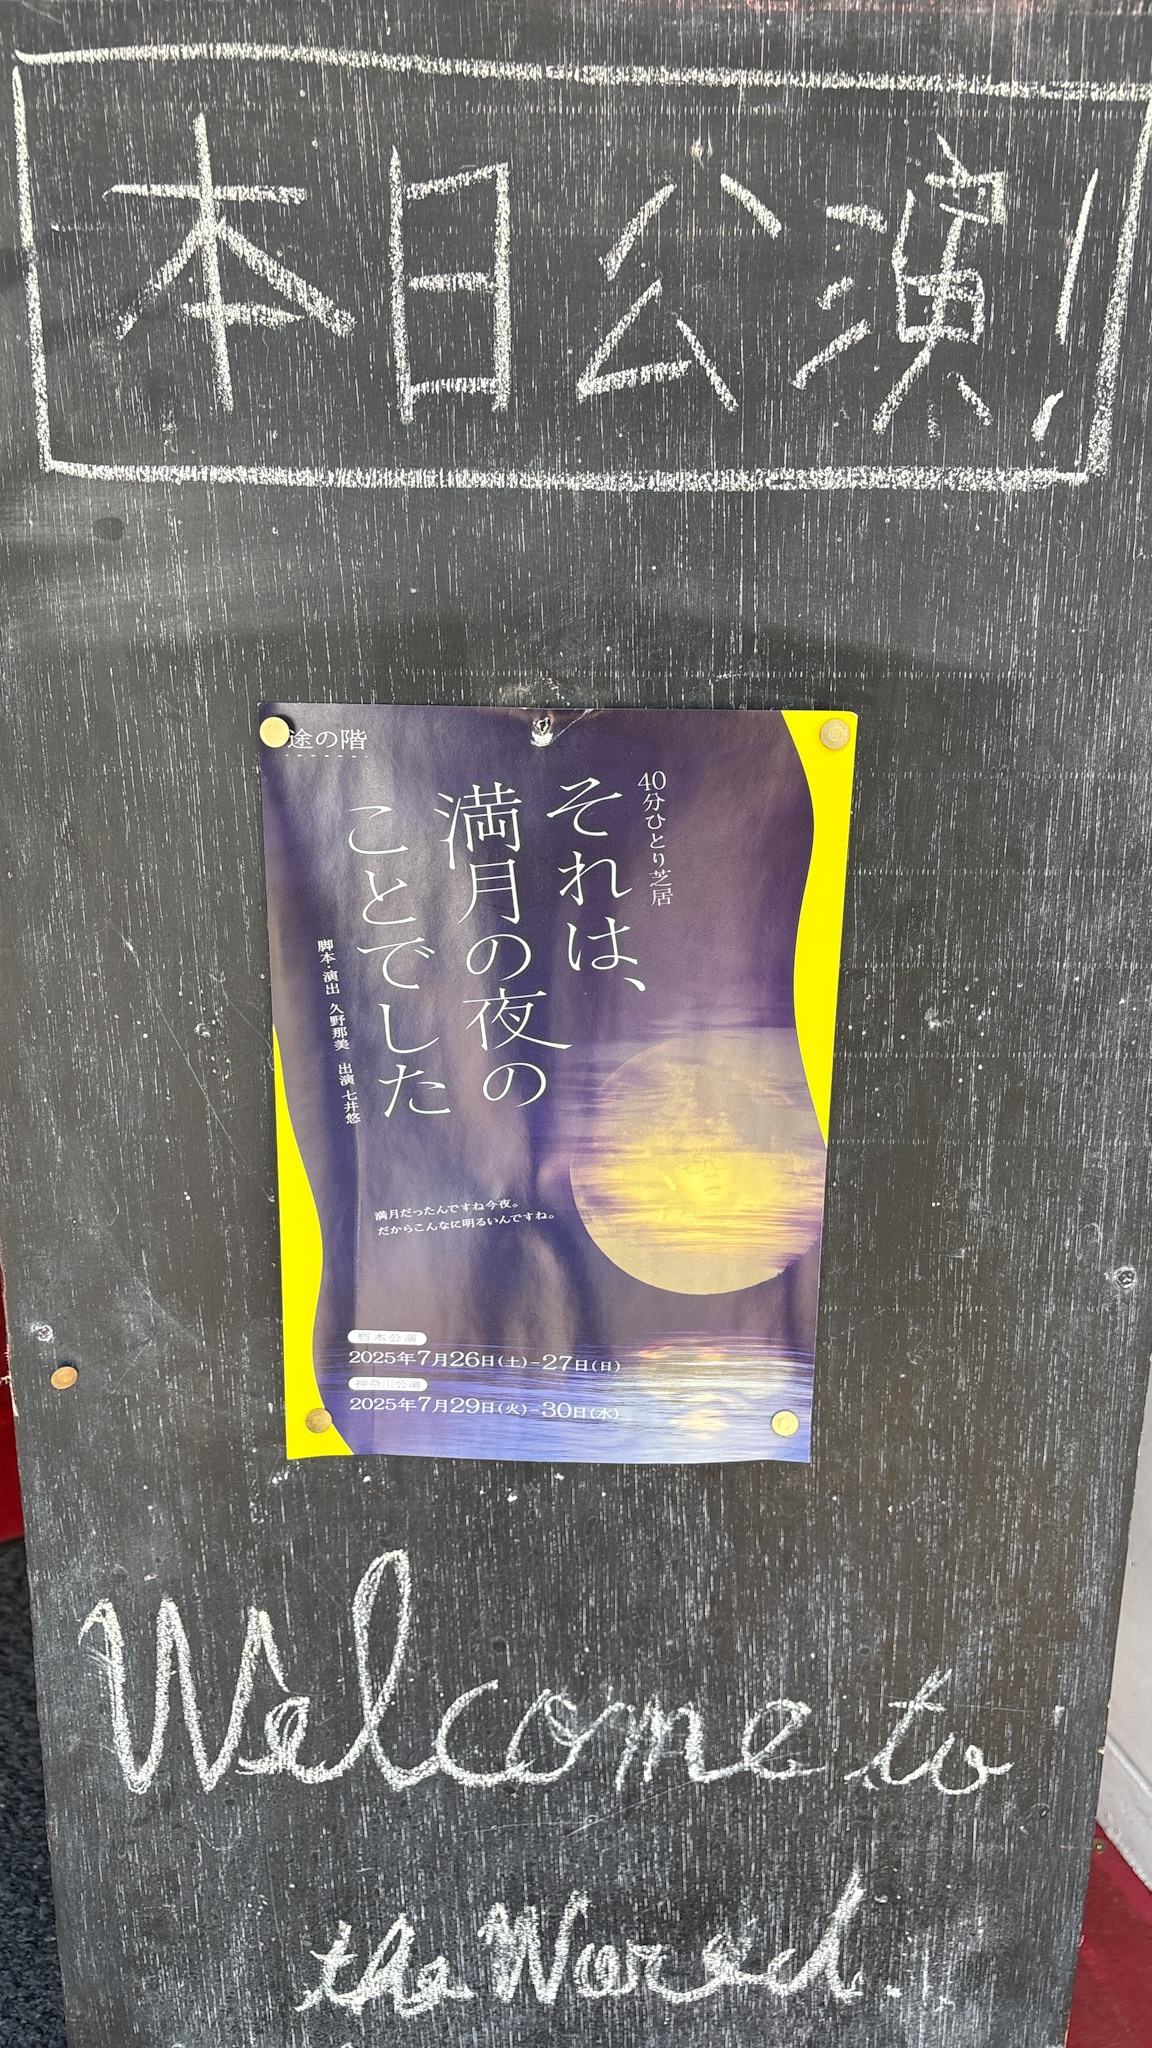 本日公演!
途の階
40分ひとり芝居
それは、
満月の夜の
ことでした
脚本・演出 久野那美 出演 七井悠
満月だったんですね今夜。
だからこんなに明るいんですね。
栃木公演
2025年7月26日(土)-27日(日)
神奈川公演
2025年7月29日(火)-30日(水)
Welcome to
the Wored.